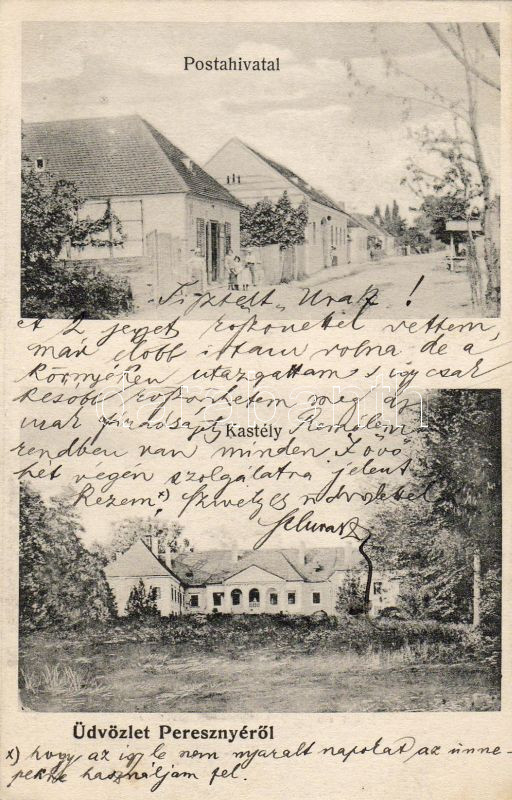 Postahivatal
Tisztelt Uraz!
A 2 jegyet köszönettel vettem,
már előbb írtam volna de a
környéken utazgattam s így csak
később köszönhetem meg az
urak jóvoltát. Remélem
Kastély
rendben van minden. Jövő
hét végén szolgálatra jelent
kezem x) Szívélyes üdvözlettel
Üdvözlet Peresznyéről
x) hogy az így le nem nyaralt napokat az ünne-
pekre használjam fel.